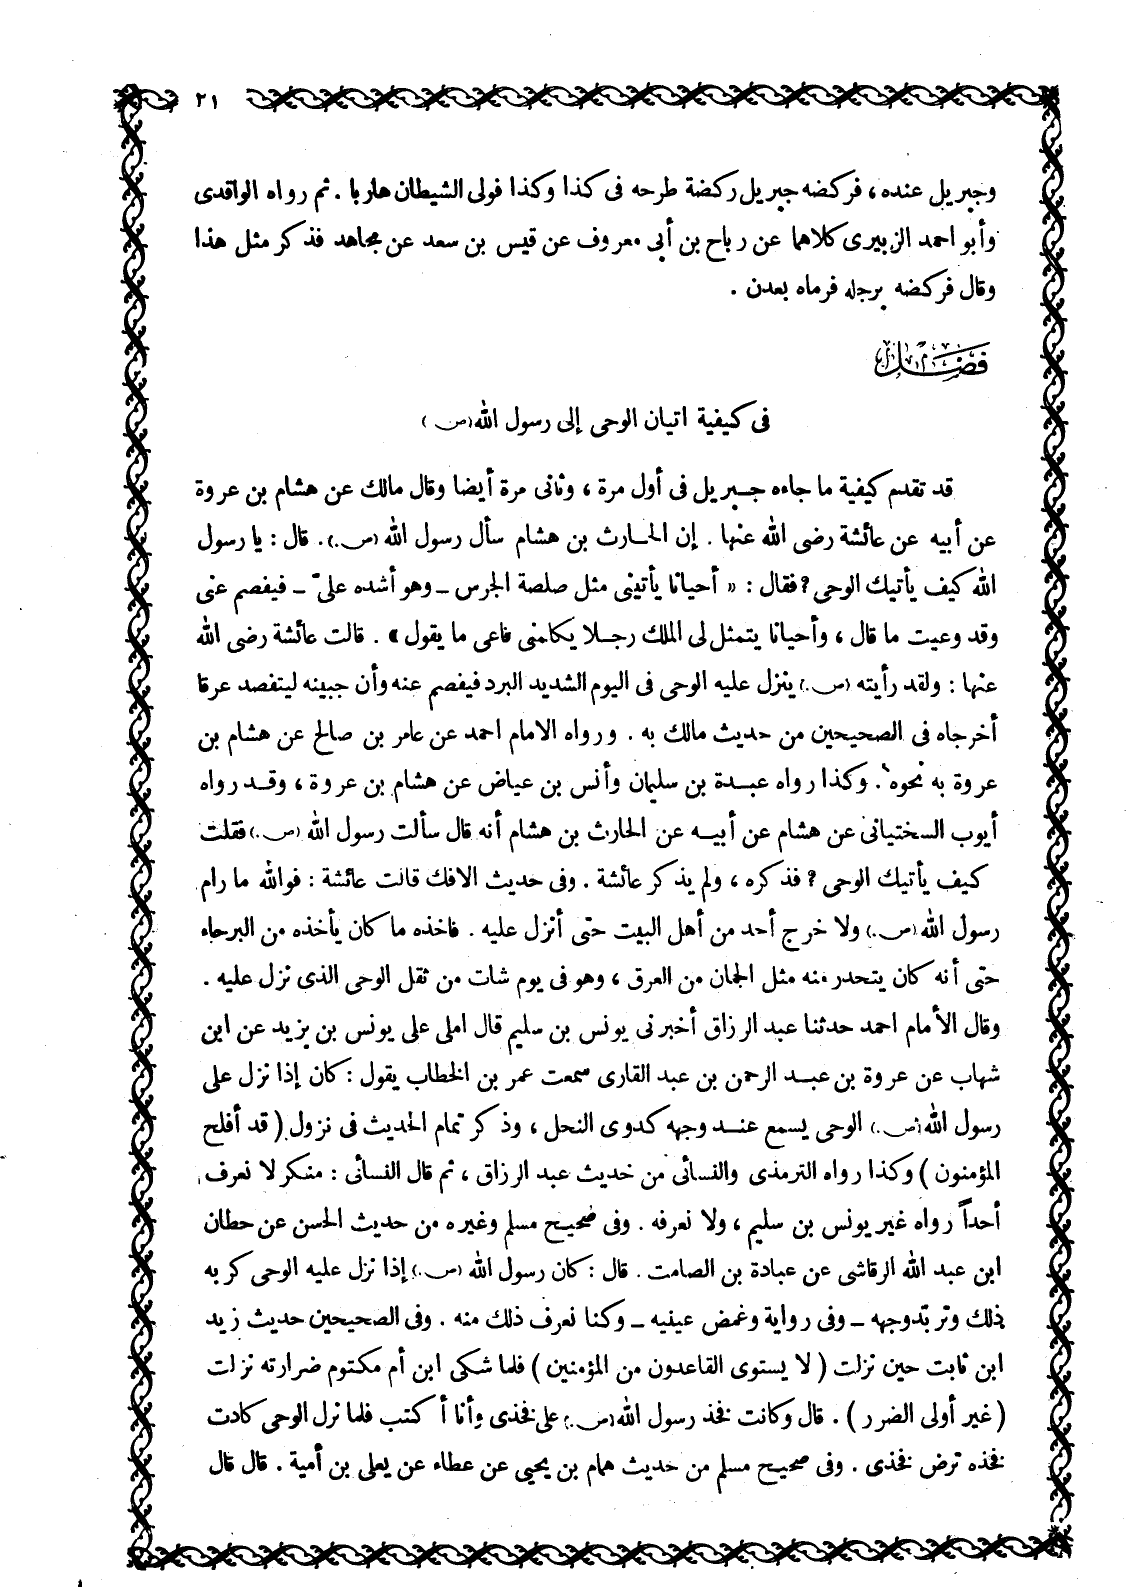 ٢١
وجبريل عنده، فركضه جبريل ركضة طرحه فى كذا وكذا فولى الشيطان هاربا. ثم رواه الواقدى
وأبو احمد الزبيرى كلاهما عن رباح بن أبى معروف عن قيس بن سعد عن مجاهد فذكر مثل هذا
وقال فركضه برجله فرماه بعدن.
فصل
فى كيفية اتيان الوحى إلى رسول الله (ص)
قد تقدم كيفية ما جاءه جبريل فى أول مرة، وثانى مرة أيضا وقال مالك عن هشام بن عروة
عن أبيه عن عائشة رضى الله عنها. إن الحارث بن هشام سأل رسول الله (ص). قال: يا رسول
الله كيف يأتيك الوحى؟ فقال: « أحيانا يأتينى مثل صلصة الجرس ـ وهو أشده علىّ ـ فيفصم عنى
وقد وعيت ما قال، وأحيانا يتمثل لى الملك رجلا يكلمنى فاعى ما يقول ». قالت عائشة رضى الله
عنها: ولقد رأيته (ص) ينزل عليه الوحى فى اليوم الشديد البرد فيفصم عنه وأن جبينه ليتفصد عرقا
أخرجاه فى الصحيحين من حديث مالك به. ورواه الامام احمد عن عامر بن صالح عن هشام بن
عروة به نحوه. وكذا رواه عبدة بن سليمان وأنس بن عياض عن هشام بن عروة، وقد رواه
أيوب السختيانى عن هشام عن أبيه عن الحارث بن هشام أنه قال سألت رسول الله (ص) فقلت
كيف يأتيك الوحى؟ فذكره، ولم يذكر عائشة. وفى حديث الافك قالت عائشة: فوالله ما رام
رسول الله (ص) ولا خرج أحد من أهل البيت حتى أنزل عليه. فاخذه ما كان يأخذه من البرحاء
حتى أنه كان يتحدر منه مثل الجمان من العرق، وهو فى يوم شات من ثقل الوحى الذى نزل عليه.
وقال الأمام احمد حدثنا عبد الرزاق أخبرنى يونس بن سليم قال املى على يونس بن يزيد عن ابن
شهاب عن عروة بن عبد الرحمن بن عبد القارى سمعت عمر بن الخطاب يقول: كان إذا نزل على
رسول الله (ص) الوحى يسمع عند وجهه كدوى النحل، وذكر تمام الحديث فى نزول (قد أفلح
المؤمنون) وكذا رواه الترمذى والنسائى من حديث عبد الرزاق، ثم قال النسائى: منكر لا نعرف
أحداً رواه غير يونس بن سليم، ولا نعرفه. وفى صحيح مسلم وغيره من حديث الحسن عن حطان
ابن عبد الله الرقاشى عن عبادة بن الصامت. قال: كان رسول الله (ص) إذا نزل عليه الوحى كربه
ذلك وتربد وجهه ـ وفى رواية وغمض عينيه ـ وكنا نعرف ذلك منه. وفى الصحيحين حديث زيد
ابن ثابت حين نزلت (لا يستوى القاعدون من المؤمنين) فلما شكى ابن أم مكتوم ضرارته نزلت
(غير أولى الضرر). قال وكانت فخذ رسول الله (ص) على فخذى وأنا أكتب فلما نزل الوحى كادت
فخذه ترض فخذى. وفى صحيح مسلم من حديث همام بن يحيى عن عطاء عن يعلى بن أمية. قال قال